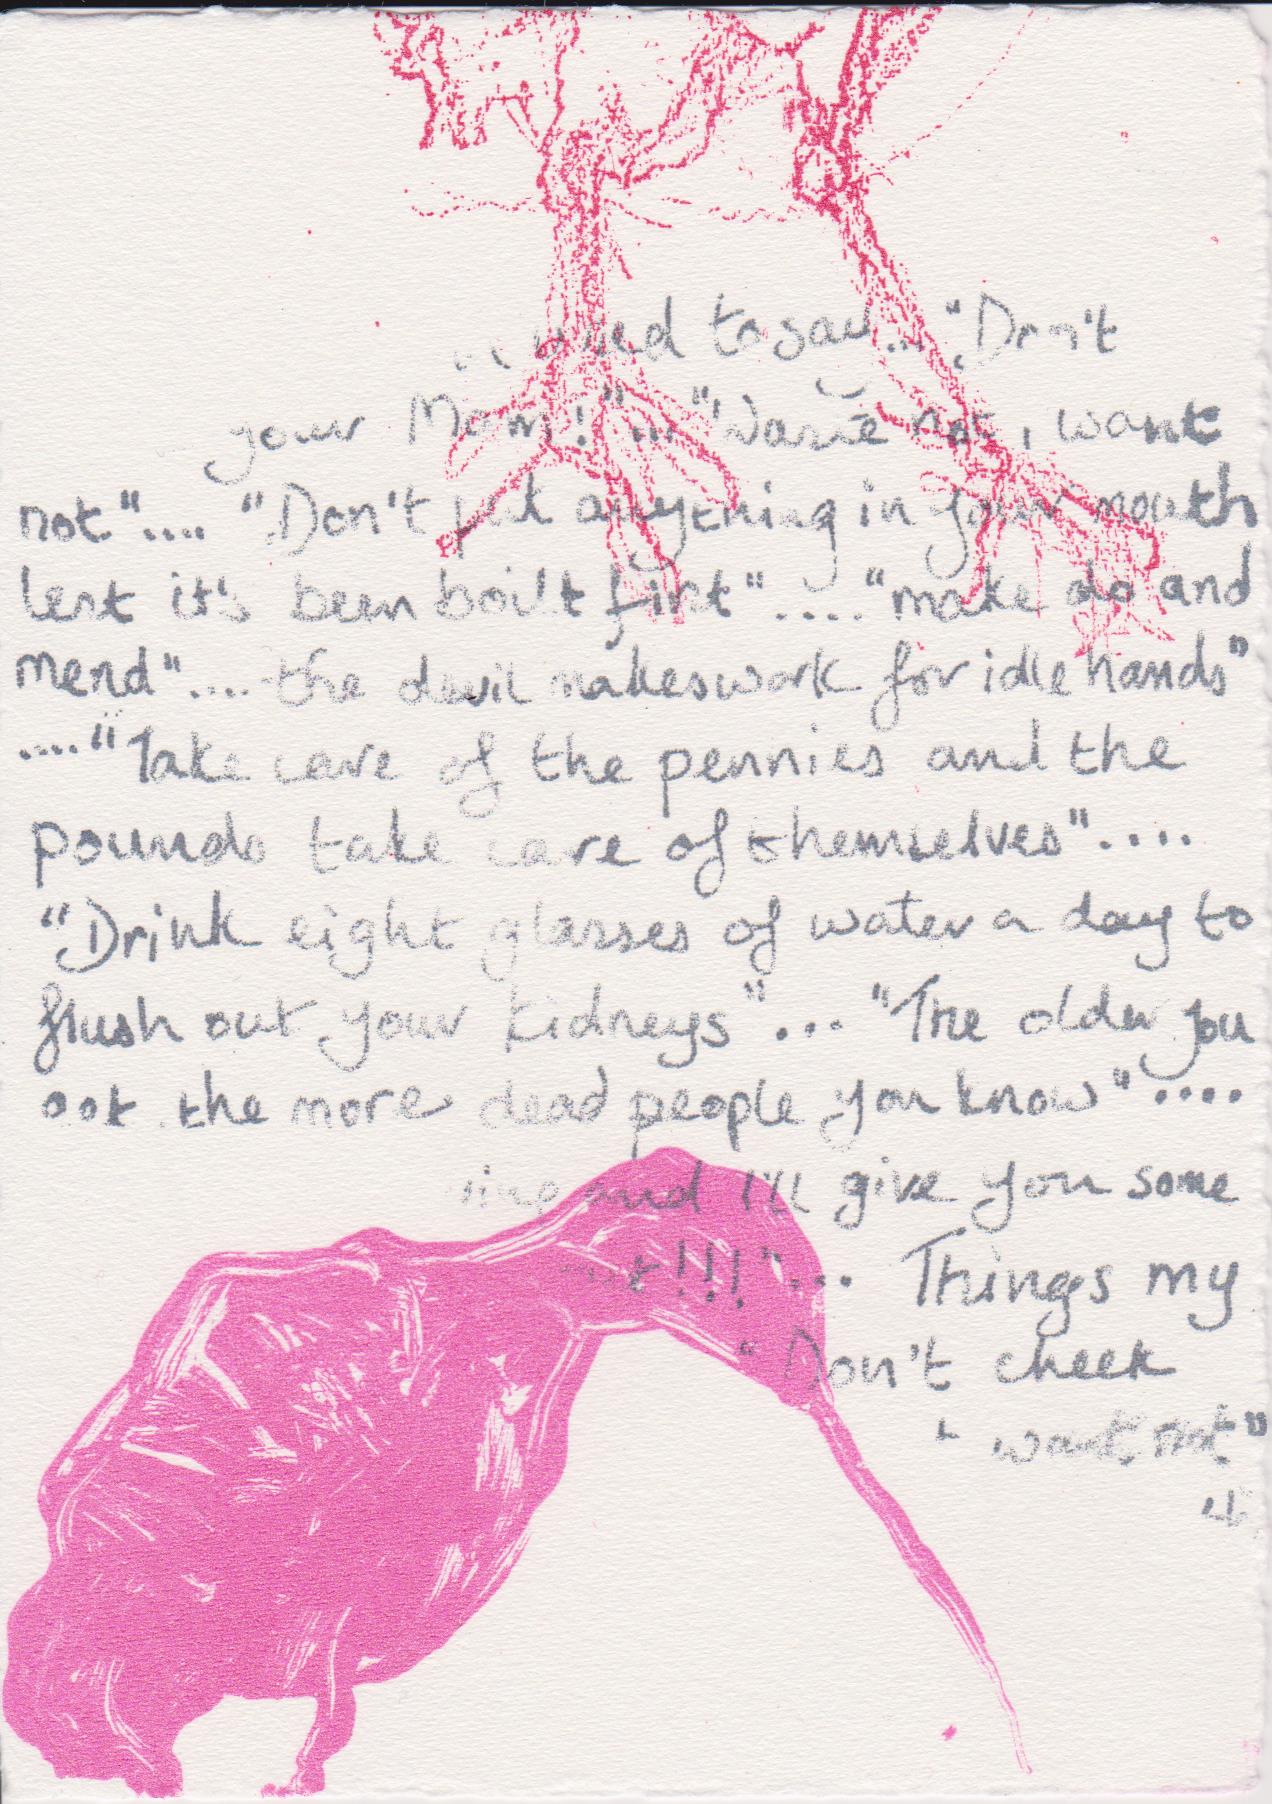 used to say... "Don't
your Mam!"... "Waste not, want
not".... "Don't put anything in your mouth
lest it's been boilt first".... "make do and
mend".... the devil makes work for idle hands"
...."Take care of the pennies and the
pounds take care of themselves"....
"Drink eight glasses of water a day to
flush out your kidneys"... "The older you
the more dead people you know"....
and I'll give you some
!!!"... Things my
"Don't cheek
want not"